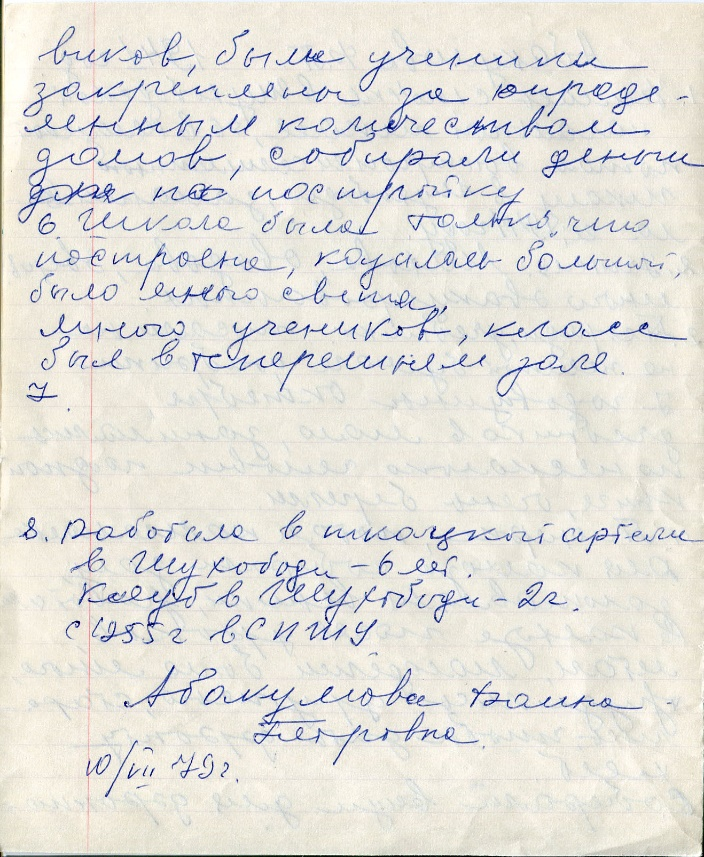 виков, были ученики
закреплены за опреде-
ленным количеством
домов, собирали деньги
для на постройку
6. Школа была только, что
построена, казалась большой,
было много света,
много учеников, класс
был в теперешнем зале.
7
8. Работала в ткацкой артели
в Шухободи - 6 лет.
Клуб в Шухободи - 2 г.
с 1955 г в СПТУ
Абакумова
Петровна.
10/VII 79 г.